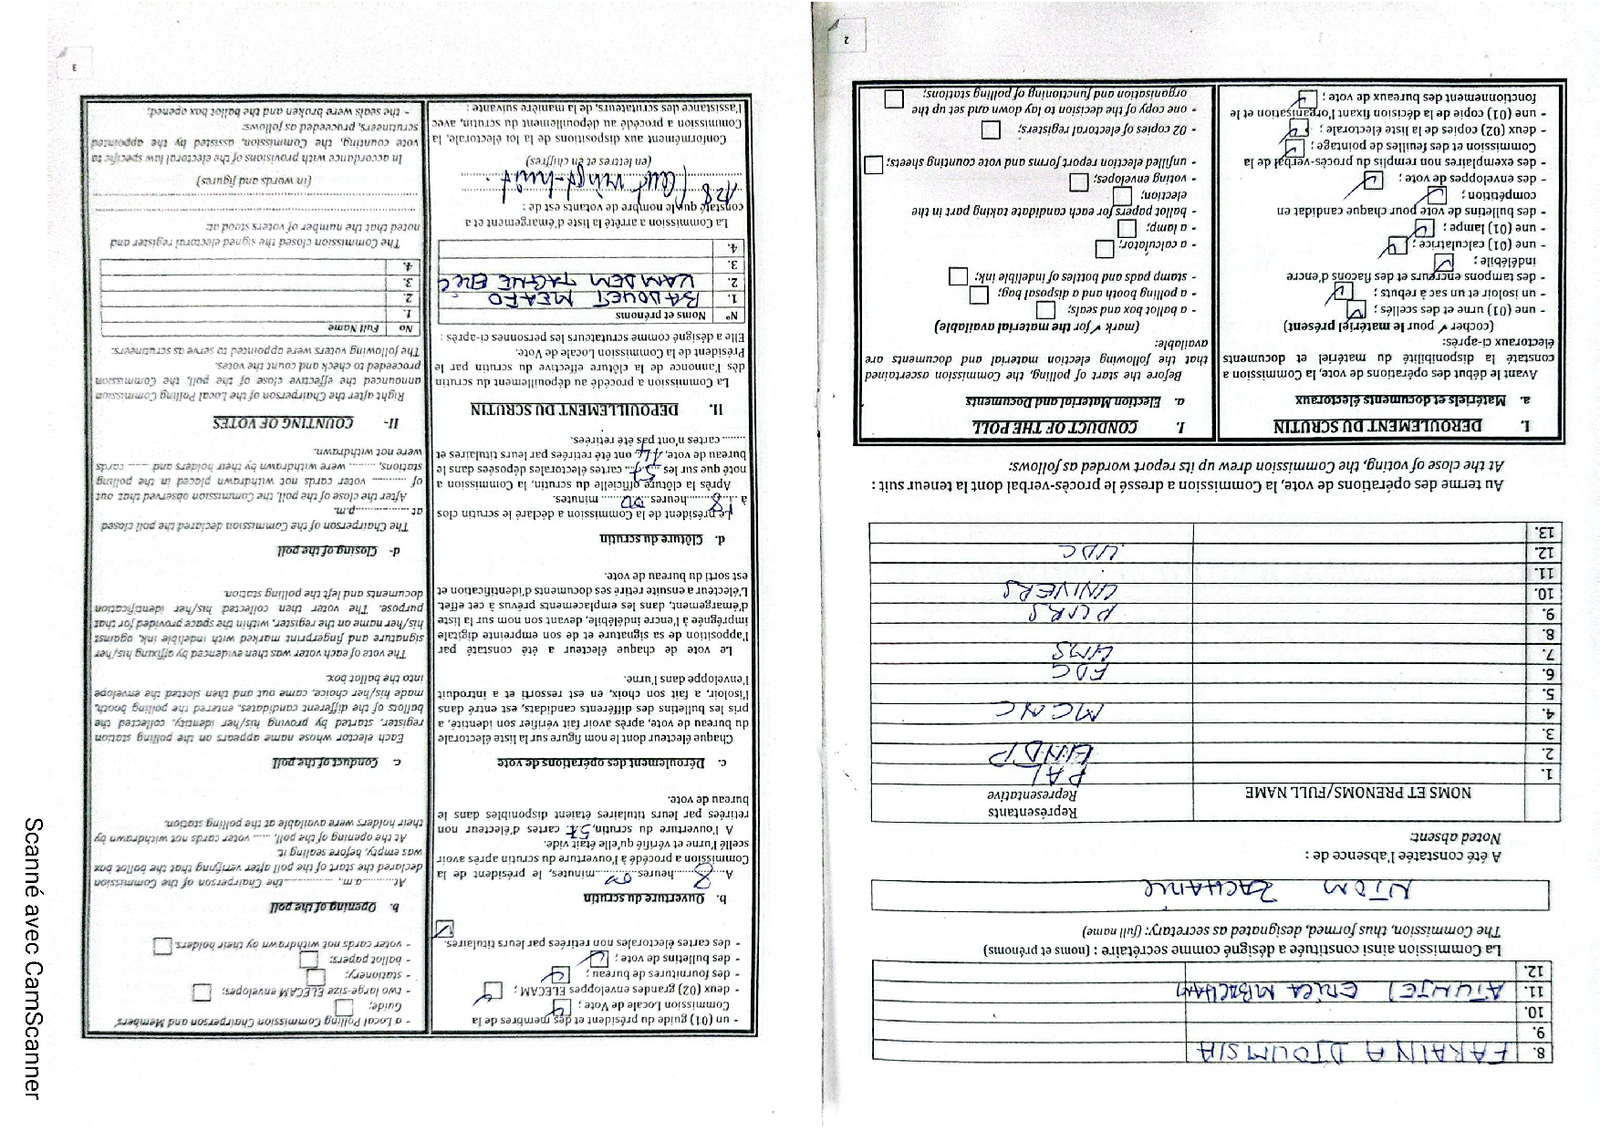 8. FARAINA DJOUMSIA
9.
10.
11. ATUNJEJ ERICA MBACHAM
12.
La Commission ainsi constituée a désigné comme secrétaire : (noms et prénoms)
The Commission, thus formed, designated as secretary: (full name)
NTOM ZACHARIE
A été constatée l'absence de :
Noted absent:
NOMS ET PRENOMS/FULL NAME Représentants
Representative
1. PAL
2. UNDP
3.
4. MCNC
5.
6. FDC
7. UMS
8.
9. PURS
10. UNIVERS
11.
12. UDC
13.
Au terme des opérations de vote, la Commission a dressé le procès-verbal dont la teneur suit :
At the close of voting, the Commission drew up its report worded as follows:
I. DEROULEMENT DU SCRUTIN
a. Matériels et documents électoraux
Avant le début des opérations de vote, la Commission a
constaté la disponibilité du matériel et documents
électoraux ci-après:
(cocher ✓ pour le matériel présent)
- une (01) urne et des scellés ;
- un isoloir et un sac à rebuts ;
- des tampons encreurs et des flacons d'encre
indélébile ;
- une (01) calculatrice ;
- une (01) lampe ;
- des bulletins de vote pour chaque candidat en
compétition ;
- des enveloppes de vote ;
- des exemplaires non remplis du procès-verbal de la
Commission et des feuilles de pointage ;
- deux (02) copies de la liste électorale ;
- une (01) copie de la décision fixant l'organisation et le
fonctionnement des bureaux de vote ;
I. CONDUCT OF THE POLL
a. Election Material and Documents
Before the start of polling, the Commission ascertained
that the following election material and documents are
available:
(mark ✓ for the material available)
- a ballot box and seals;
- a polling booth and a disposal bag;
- stamp pads and bottles of indelible ink;
- a calculator;
- a lamp;
- ballot papers for each candidate taking part in the
election;
- voting envelopes;
- unfilled election report forms and vote counting sheets;
- 02 copies of electoral registers;
- one copy of the decision to lay down and set up the
organisation and functioning of polling stations;
2
- un (01) guide du président et des membres de la
Commission Locale de Vote ;
- deux (02) grandes enveloppes ELECAM ;
- des fournitures de bureau ;
- des bulletins de vote ;
- des cartes électorales non retirées par leurs titulaires.
b. Ouverture du scrutin
A 8 heures 00 minutes, le président de la
Commission a procédé à l'ouverture du scrutin après avoir
scellé l'urne et vérifié qu'elle était vide.
A l'ouverture du scrutin, 57 cartes d'électeur non
retirées par leurs titulaires étaient disponibles dans le
bureau de vote.
c. Déroulement des opérations de vote
Chaque électeur dont le nom figure sur la liste électorale
du bureau de vote, après avoir fait vérifier son identité, a
pris les bulletins des différents candidats, est entré dans
l'isoloir, a fait son choix, en est ressorti et a introduit
l'enveloppe dans l'urne.
Le vote de chaque électeur a été constaté par
l'apposition de sa signature et de son empreinte digitale
imprégnée à l'encre indélébile, devant son nom sur la liste
d'émargement, dans les emplacements prévus à cet effet.
L'électeur a ensuite retiré ses documents d'identification et
est sorti du bureau de vote.
d. Clôture du scrutin
Le président de la Commission a déclaré le scrutin clos
à 18 heures 00 minutes.
Après la clôture officielle du scrutin, la Commission a
noté que sur les 57 cartes électorales déposées dans le
bureau de vote, 14 ont été retirées par leurs titulaires et
........ cartes n'ont pas été retirées.
II. DEPOUILLEMENT DU SCRUTIN
La Commission a procédé au dépouillement du scrutin
dès l'annonce de la clôture effective du scrutin par le
Président de la Commission Locale de Vote.
Elle a désigné comme scrutateurs les personnes ci-après :
N° Noms et prénoms
1. BADOUET MEAFO
2. KAMDEM TAGNE ERIC
3.
4.
La Commission a arrêté la liste d'émargement et a
constaté que le nombre de votants est de :
128 (cent vingt-huit
(en lettres et en chiffres)
Conformément aux dispositions de la loi électorale, la
Commission a procédé au dépouillement du scrutin, avec
l'assistance des scrutateurs, de la manière suivante :
- a Local Polling Commission Chairperson and Members'
Guide;
- two large-size ELECAM envelopes;
- stationery;
- ballot papers;
- voter cards not withdrawn by their holders.
b. Opening of the poll
At............a.m, ............the Chairperson of the Commission
declared the start of the poll after verifying that the ballot box
was empty, before sealing it.
At the opening of the poll, ..... voter cards not withdrawn by
their holders were available at the polling station.
c. Conduct of the poll
Each elector whose name appears on the polling station
register, started by proving his/her identity, collected the
ballots of the different candidates, entered the polling booth,
made his/her choice, came out and then slotted the envelope
into the ballot box.
The vote of each voter was then evidenced by affixing his/her
signature and fingerprint marked with indelible ink, against
his/her name on the register, within the space provided for that
purpose. The voter then collected his/her identification
documents and left the polling station.
d- Closing of the poll
The Chairperson of the Commission declared the poll closed
at ..................p.m.
After the close of the poll, the Commission observed that out
of ........... voter cards not withdrawn placed in the polling
stations, ........ were withdrawn by their holders and ...... cards
were not withdrawn.
II- COUNTING OF VOTES
Right after the Chairperson of the Local Polling Commission
announced the effective close of the poll, the Commission
proceeded to check and count the votes.
The following voters were appointed to serve as scrutineers:
No Full Name
1.
2.
3.
4.
The Commission closed the signed electoral register and
noted that the number of voters stood at:
(in words and figures)
In accordance with provisions of the electoral law specific to
vote counting, the Commission, assisted by the appointed
scrutineers, proceeded as follows:
- the seals were broken and the ballot box opened;
3
Scanné avec CamScanner